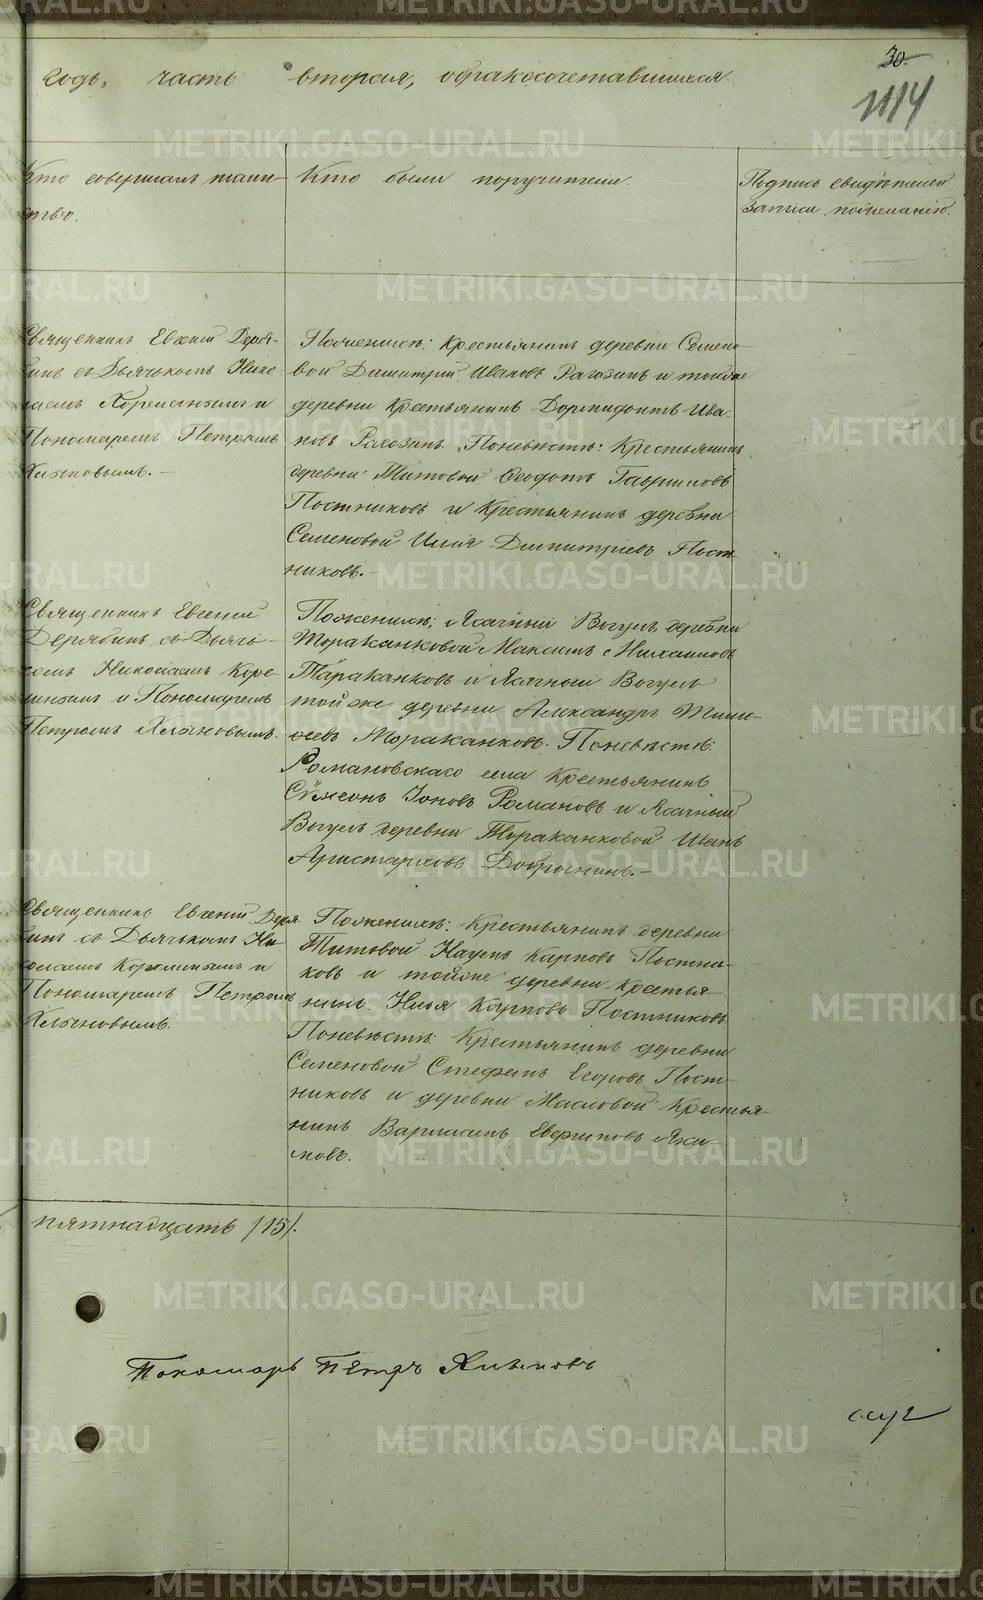 30.
годъ, часть вторая, о бракосочетавшихся
Кто совершалъ таин-
ство.
Кто были поручители.
Подпись свидѣтелей
записи по желанію.
Священникъ Евгеній Деря-
бинъ съ Дьячькомъ Нико
лаемъ и
Пономаремъ Петромъ
Хлыновымъ. —
По женихѣ: Крестьянинъ деревни Семено-
вой Димитрій Ивановъ Рагозинъ и тойже
деревни Крестьянинъ Дормидонтъ Ива
новъ Рагозинъ. По невѣстѣ: Крестьянинъ
деревни Титовой Ѳеодотъ Гавриловъ
Постниковъ и Крестьянинъ деревни
Семеновой Илія Димитріевъ Пост-
никовъ. —
Священникъ Евгеній
Дерябинъ съ Дьячь-
комъ Николаемъ
и Пономаремъ
Петромъ Хлыновымъ.
По женихѣ: Ясачный Вогулъ деревни
Тораканковой Максимъ Михаиловъ
Тараканковъ и Ясачный Вогулъ
той же деревни Александръ Тимо-
ѳеевъ Тораканковъ. По невѣстѣ:
Романовскаго села Крестьянинъ
Сѷмеонъ Іоновъ Романовъ и Ясачный
Вогулъ деревни Тораканковой Иванъ
Аристарховъ Добрынинъ. —
Священникъ Евгеній Деря
бинъ съ Дьячькомъ Ни-
колаемъ и
Пономаремъ Петромъ
Хлыновымъ.
По женихѣ: Крестьянинъ деревни
Титовой Наумъ Карповъ Постни-
ковъ и тойже деревни Крестья
нинъ Илья Карповъ Постниковъ
По невѣстѣ: Крестьянинъ деревни
Семеновой Стефанъ Егоровъ Пост-
никовъ и деревни Масловой Крестья-
нинъ Варламъ Яки-
мовъ.
пятнадцать /15/.
Пономарь Петръ Хлыновъ
METRIKI.GASO-URAL.RU